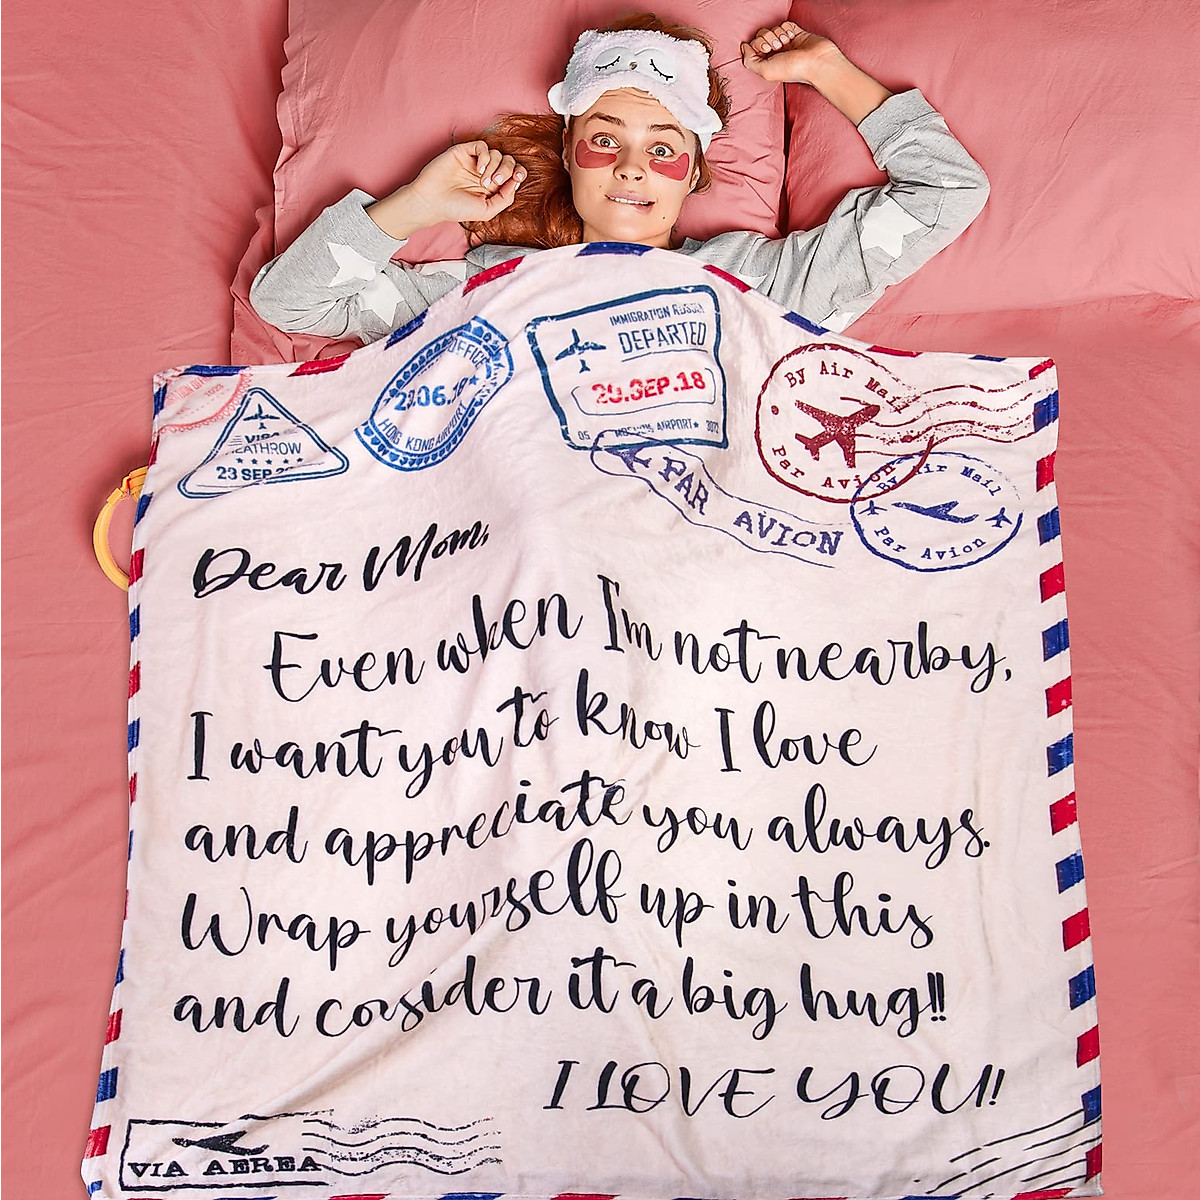 OFFICE
HONG KONG AIRPORT
IMMIGRATION
DEPARTED
20.SEP.18
AIRPORT
By Air Mail
Par Avion
VISA
HEATHROW
23 SEP
PAR AVION
By Air Mail
Par Avion
Dear Mom,
Even when I'm not nearby,
I want you to know I love
and appreciate you always.
Wrap yourself up in this
and consider it a big hug!!
I LOVE YOU!
VIA AEREA